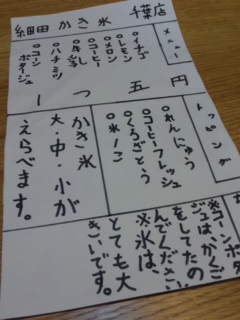 細田 かき氷 千葉店
メニュー
○イチゴ
○レモン
○メロン
○コーヒー
○牛乳
○ハチミツ
○コーンポタージュ
一つ 五円
トッピング
○れんにゅう
○コーヒーフレッシュ
○くろざとう
○氷一こ
かき氷
大・中・小が
えらべます。
※コーンポタージュはかくごをしてたのんでください。
※氷は、とても大きいです。